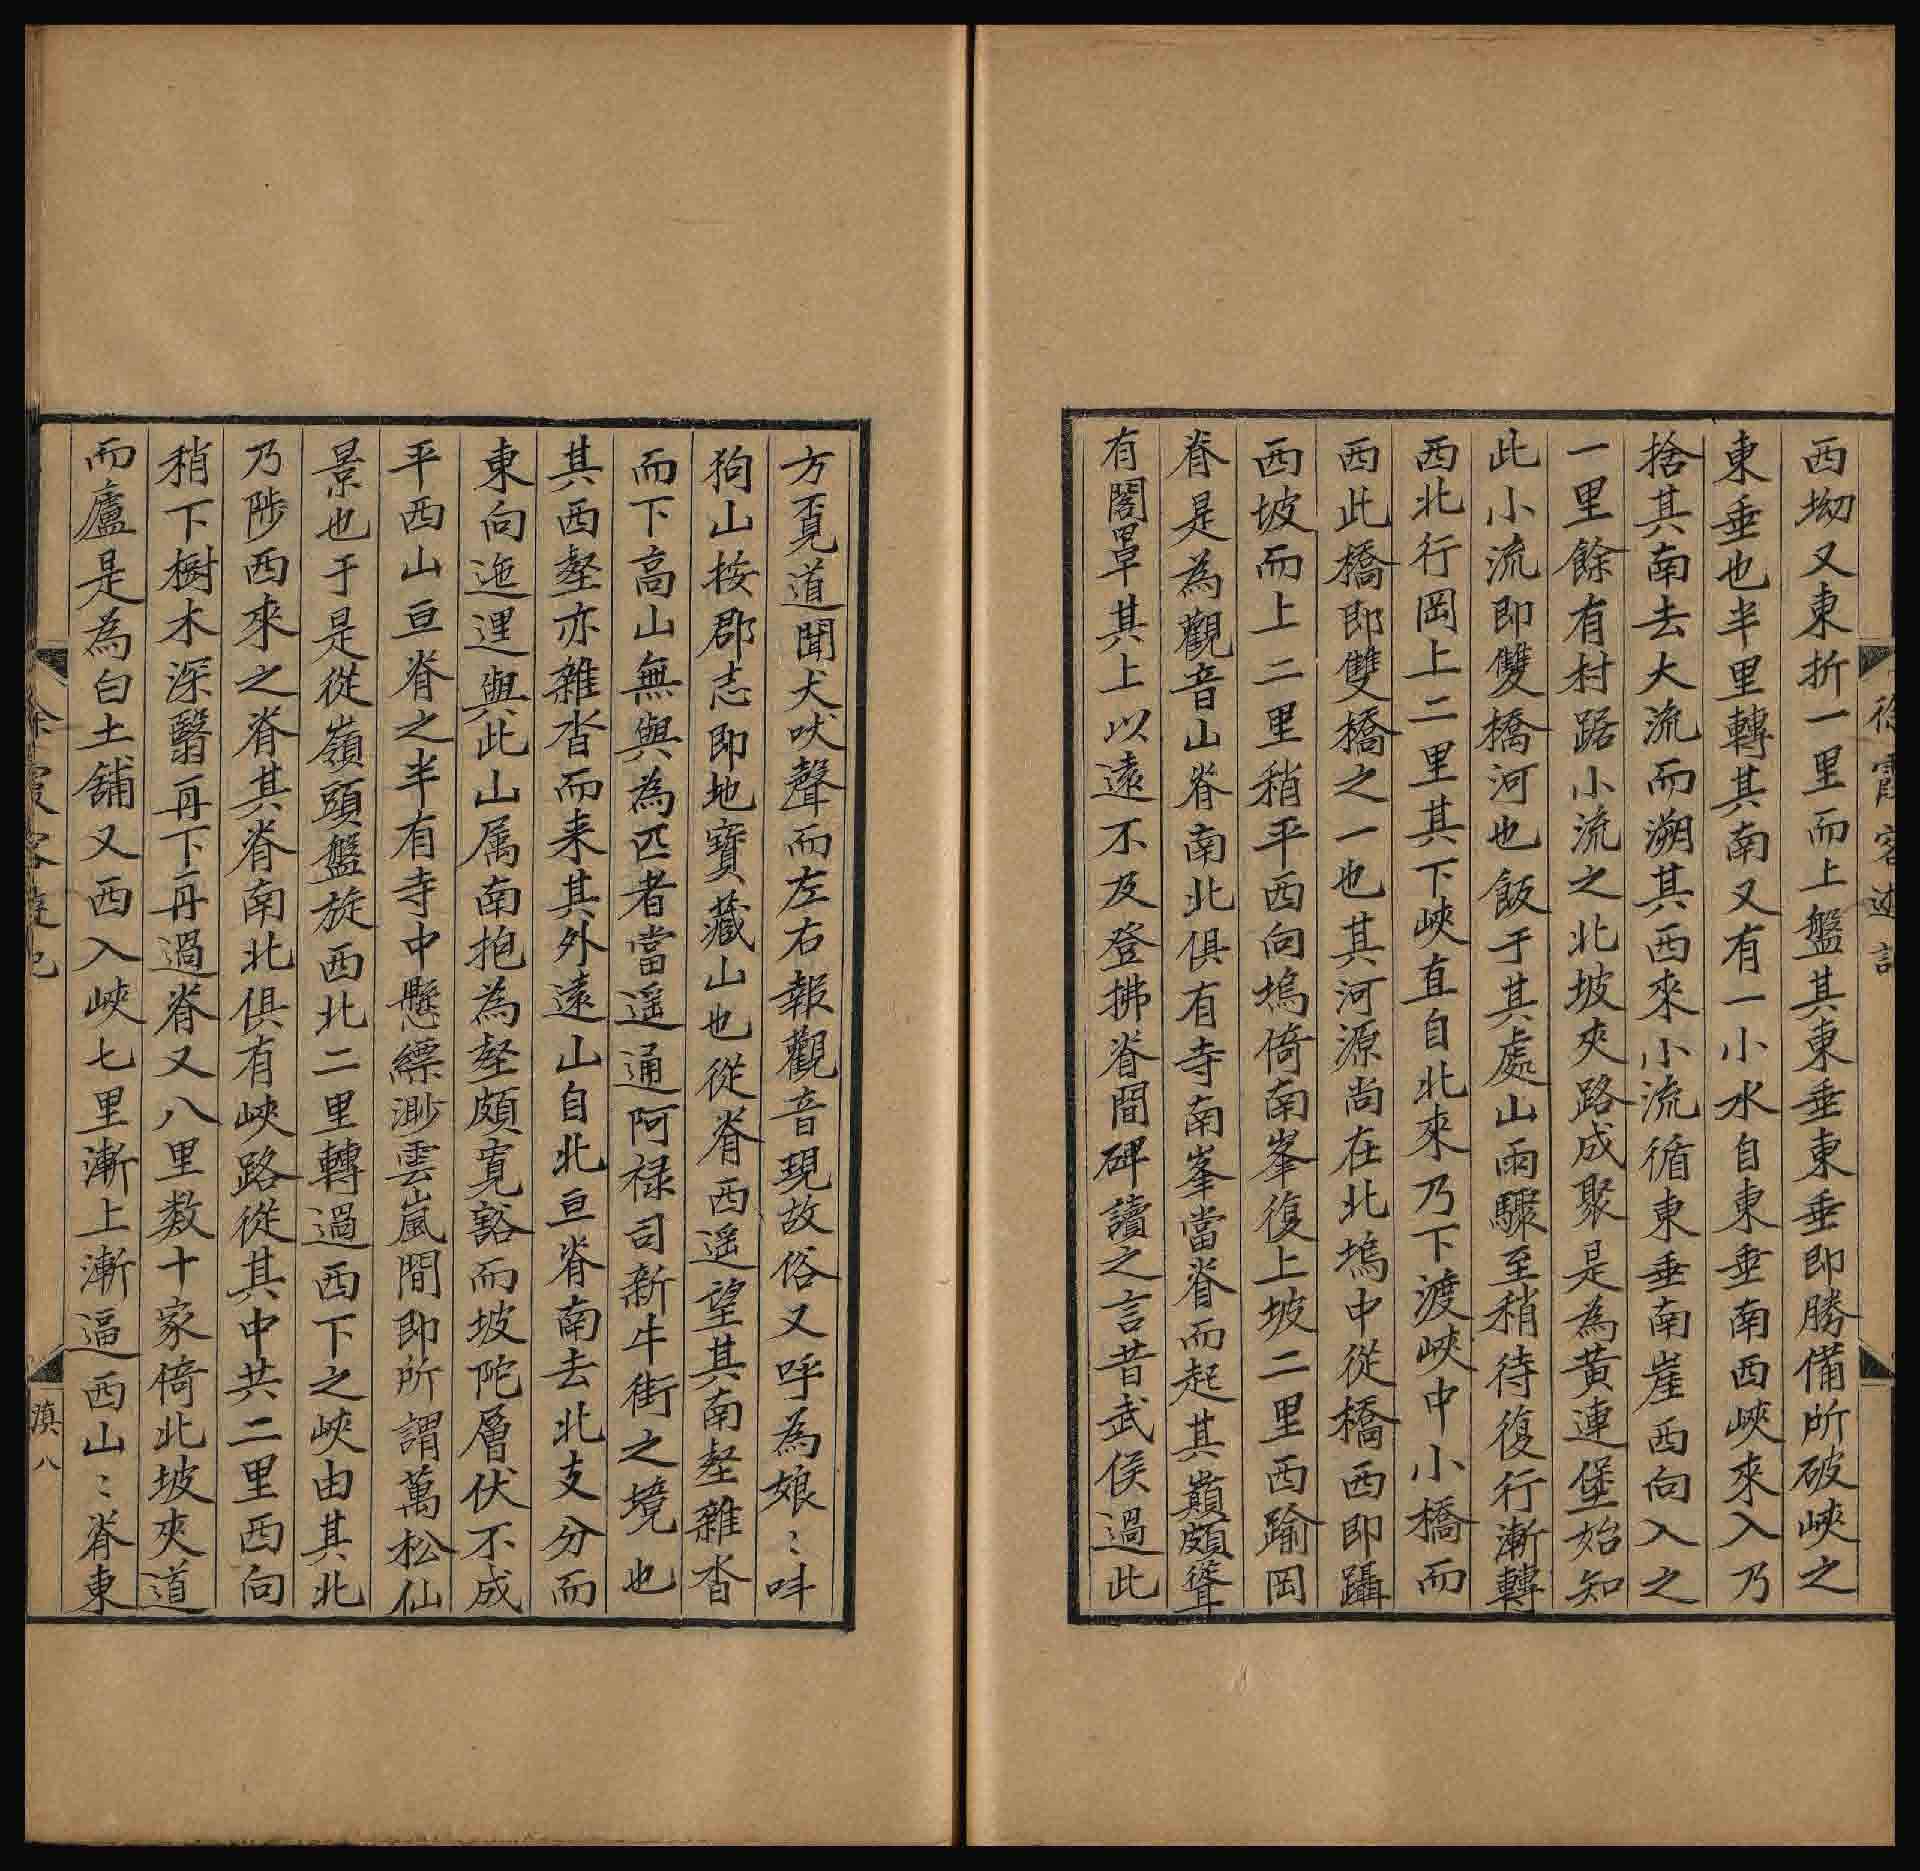 徐霞客遊記
西坳又東折一里而上盤其東垂東垂即勝備所破峽之
東垂也半里轉其南又有一小水自東垂南西峽來入乃
捨其南去大流而溯其西來小流循東垂南崖西向入之
一里餘有村踞小流之北坡夾路成聚是為黃連堡始知
此小流即雙橋河也飯于其處山雨驟至稍待復行漸轉
西北行岡上二里其下峽直自北來乃下渡峽中小橋而
西此橋即雙橋之一也其河源尚在北塢中從橋西即躡
西坡而上二里稍平西向塢倚南峯復上坡二里西踰岡
脊是為觀音山脊南北俱有寺南峯當脊而起其巔頗聳
有閣罩其上以遠不及登拂脊間碑讀之言昔武侯過此
方覔道聞犬吠聲而左右報觀音現故俗又呼為娘〻呌
狗山按郡志即地寶藏山也從脊西遥望其南壑雜沓
而下高山無與為匹者當遥通阿禄司新牛街之境也
其西壑亦雜沓而来其外遠山自北亘脊南去北支分而
東向迤逦與此山属南抱為壑頗寬豁而坡陀層伏不成
平西山亘脊之半有寺中懸縹渺雲嵐間即所謂萬松仙
景也于是從嶺頭盤旋西北二里轉過西下之峽由其北
乃陟西來之脊其脊南北俱有峽路從其中共二里西向
稍下樹木深翳再下再過脊又八里数十家倚北坡夾道
而廬是為白土舖又西入峽七里漸上漸逼西山〻脊東
徐霞客遊記
滇八